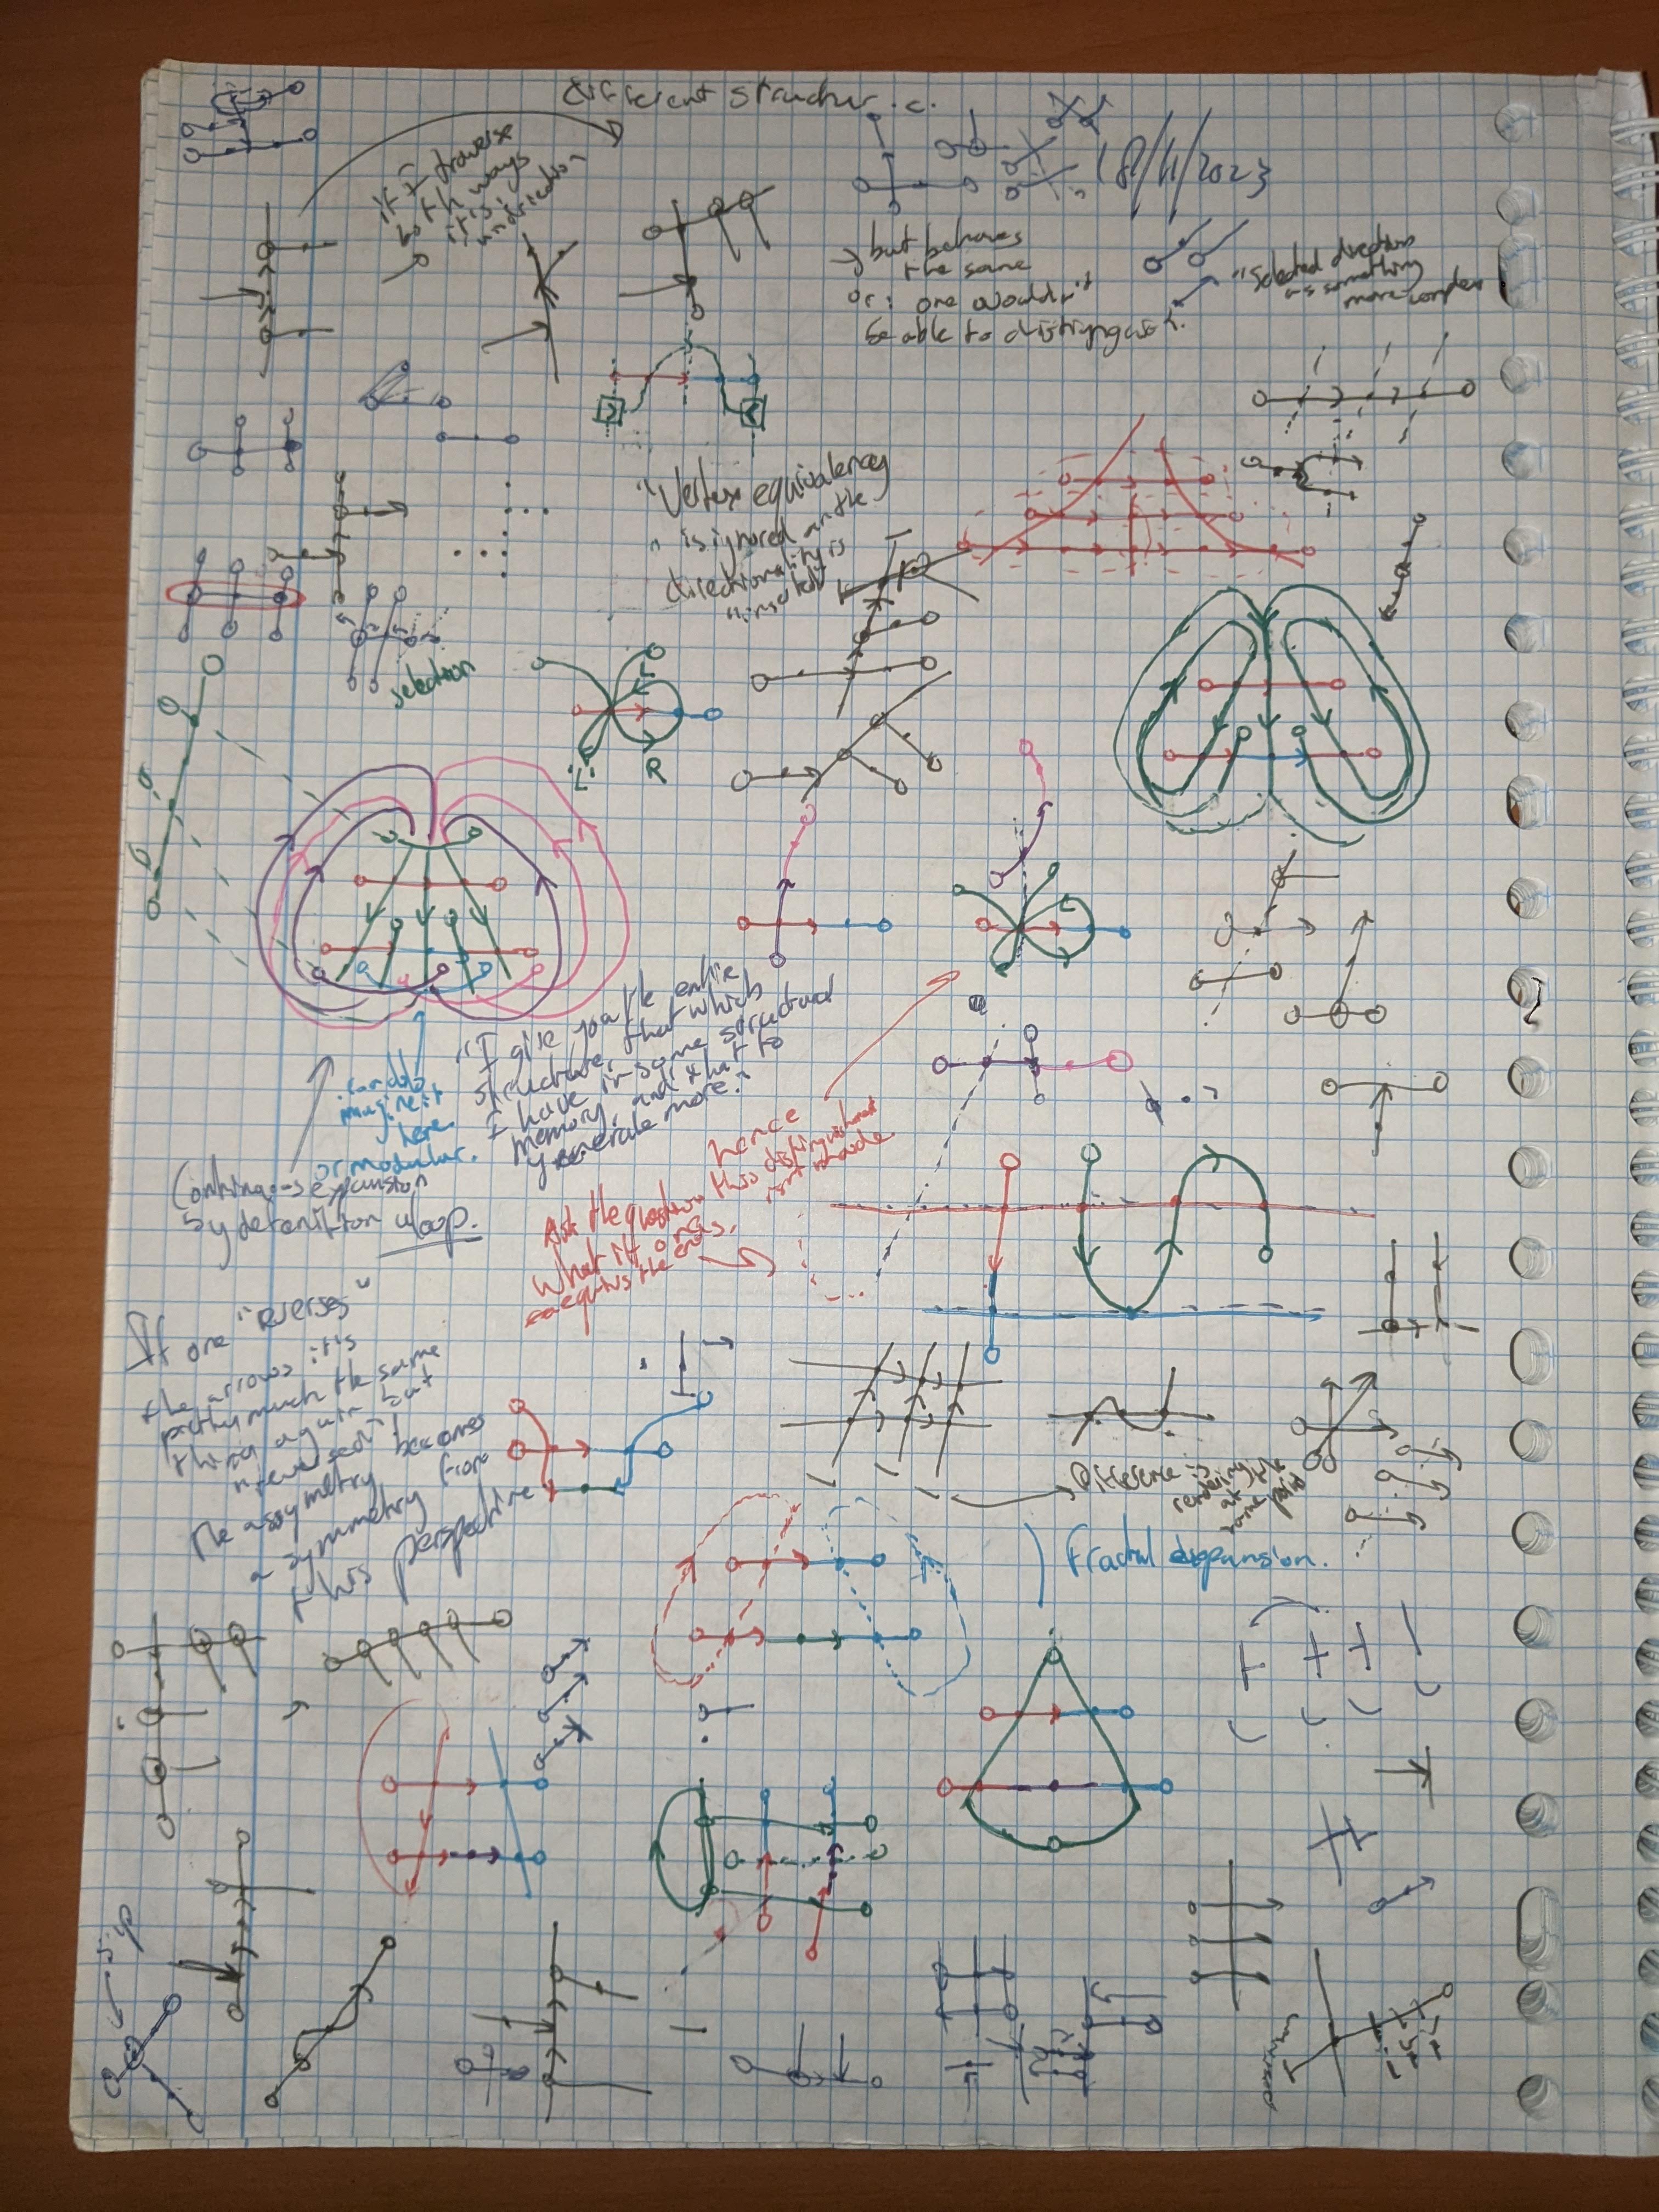 different structur.
if I traverse
both ways
it is
18/11/2023
but behaves
the same
or: one wouldn't
be able to distinguish.
"selected direction
as something
more complex
"Vertex equivalency
is ignored and the
directionality is
selection
"L"
R
"I give you the entire
structure, that which
I have in some structural
memory, and that to
generate more."
imagine it
here
or modular.
by definition a loop.
hence
this
isn't made
Ask the question
What if one
the ends.
If one "reverses"
the arrows it's
pretty much the same
thing again but
reversed!
The assymetry becomes
a symmetry from
this perspective
Difference is
rendering
at the
same point
Fractal expansion.